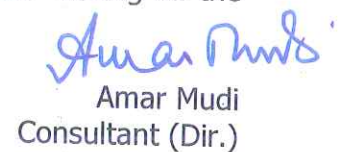 Amar Mudi
Amar Mudi
Consultant (Dir.)